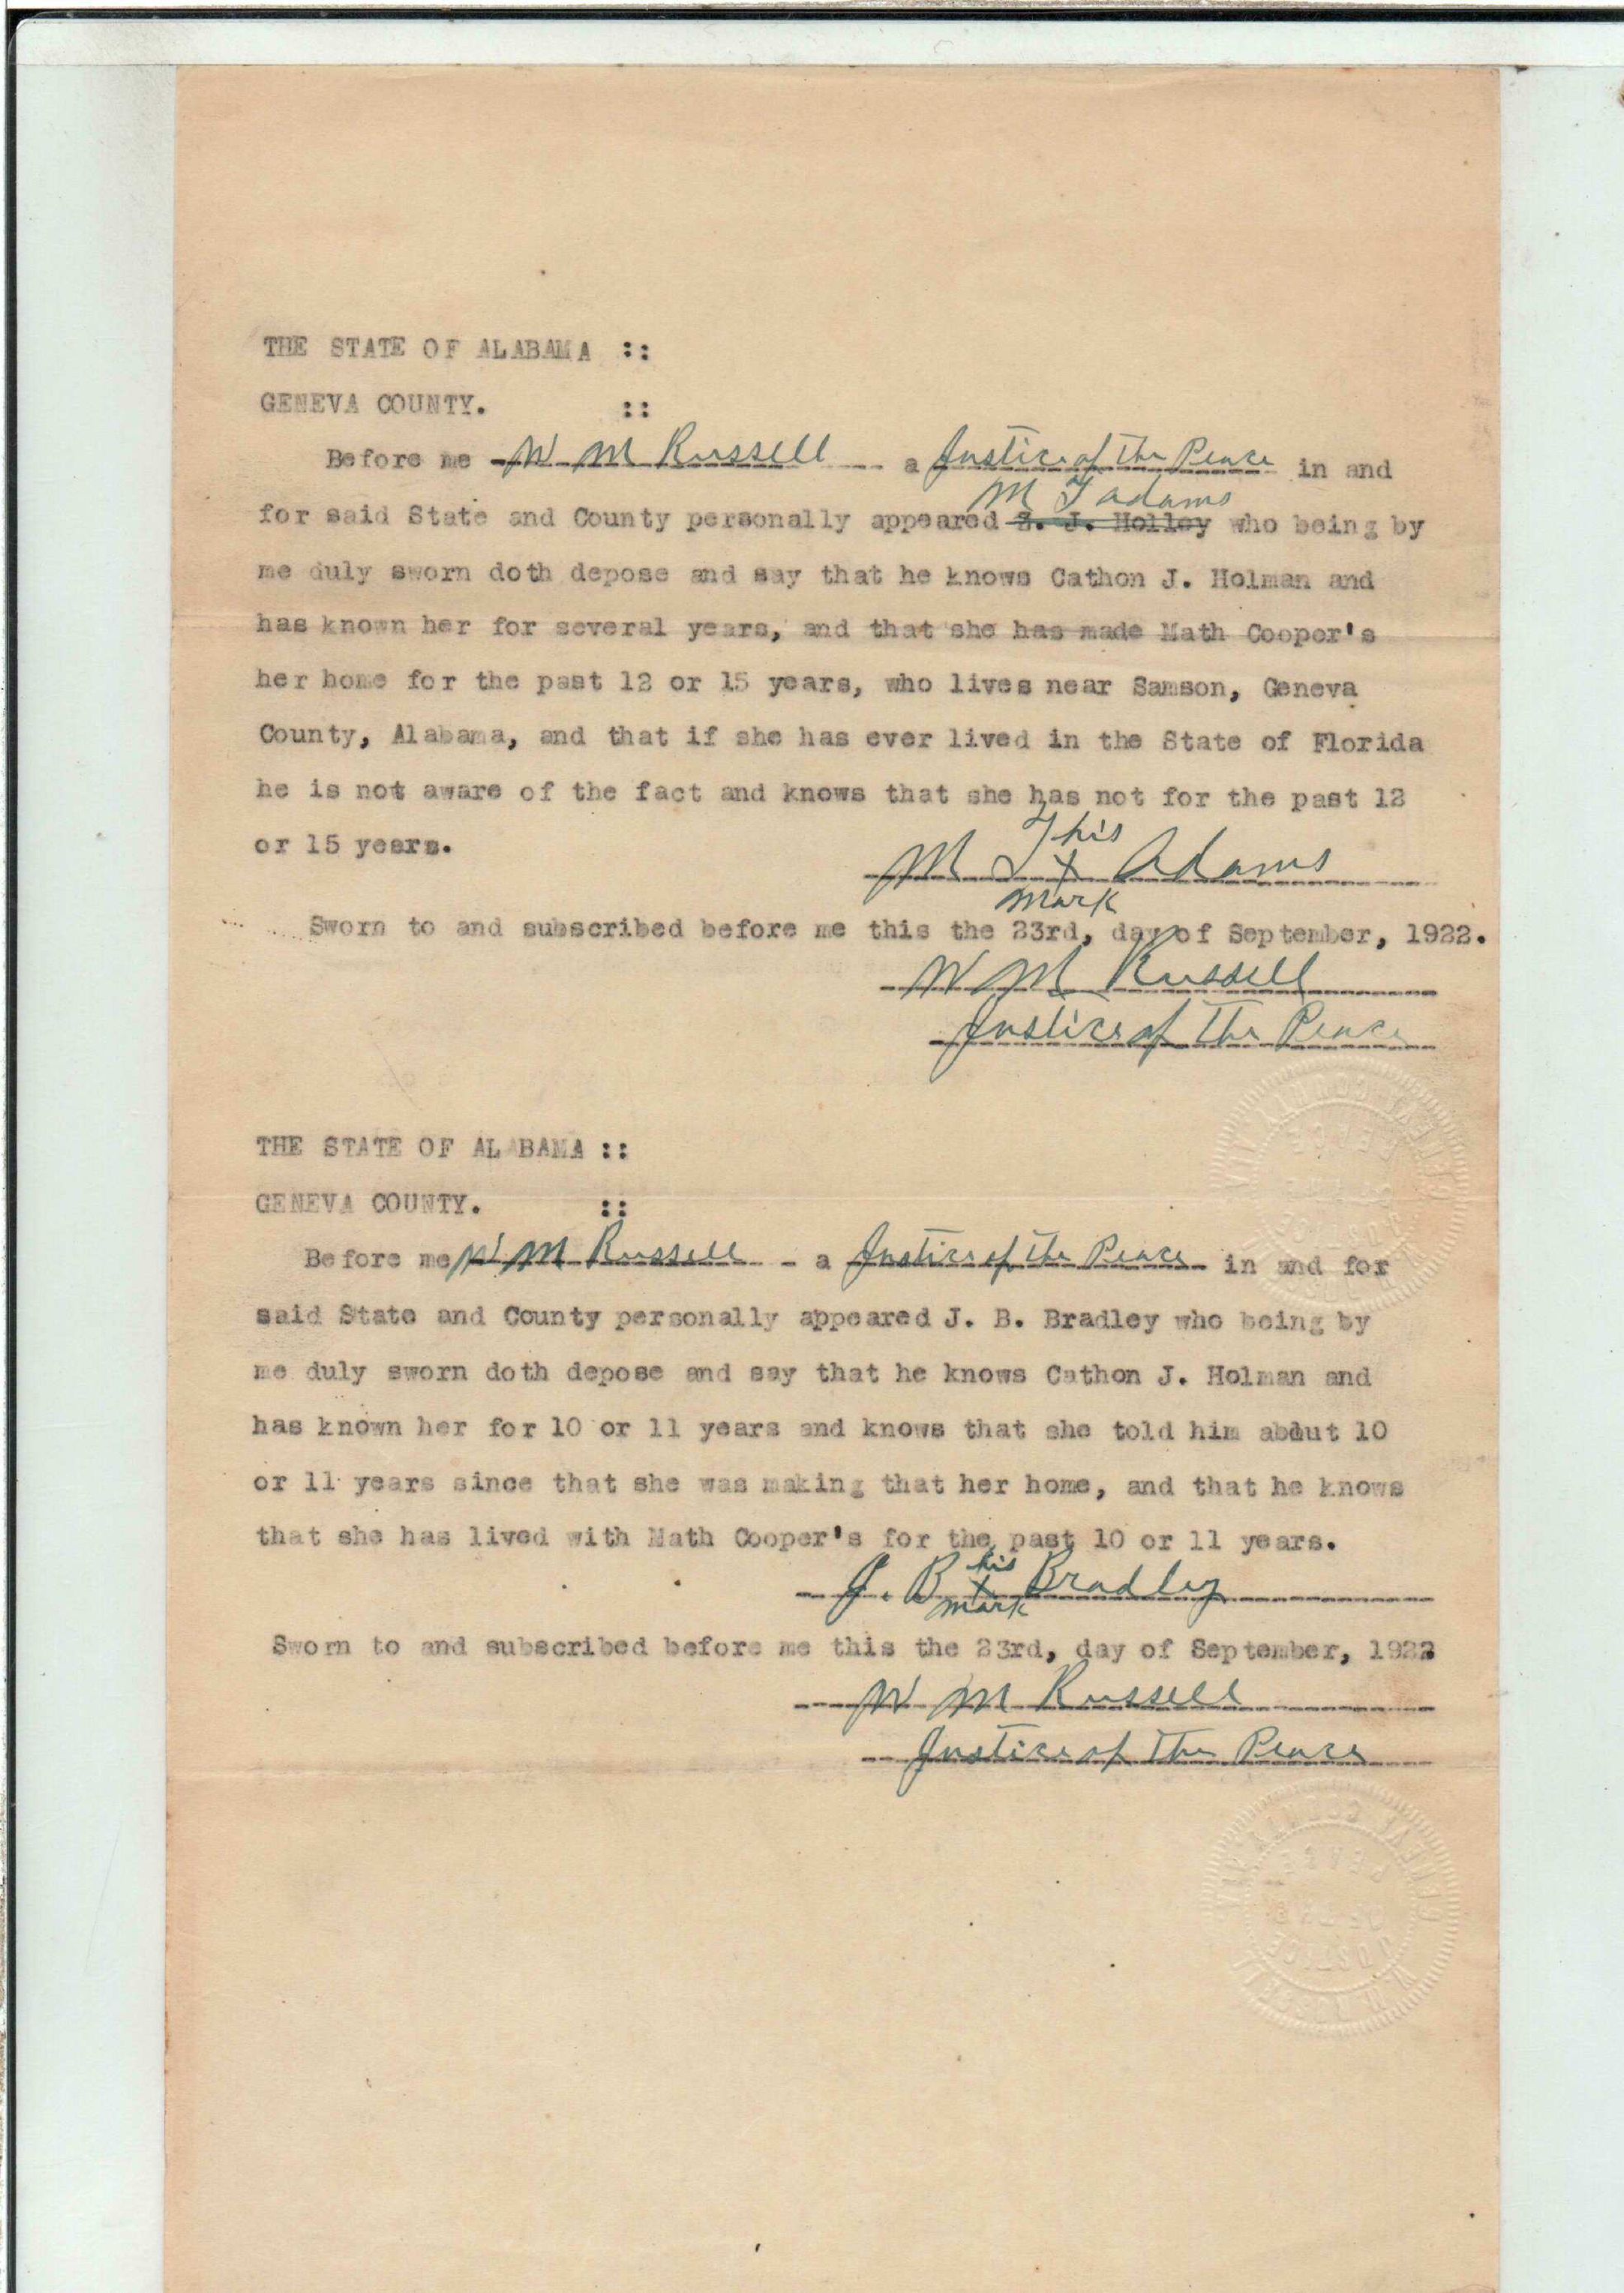 THE STATE OF ALABAMA ::
GENEVA COUNTY. ::
Before me W M Russell a Justice of the Peace in and
M T Adams
for said State and County personally appeared J. Holley who being by
me duly sworn doth depose and say that he knows Cathon J. Holman and
has known her for several years, and that she has made Math Cooper's
her home for the past 12 or 15 years, who lives near Samson, Geneva
County, Alabama, and that if she has ever lived in the State of Florida
he is not aware of the fact and knows that she has not for the past 12
or 15 years.
his
M T x Adams
mark
Sworn to and subscribed before me this the 23rd, day of September, 1922.
W M Russell
Justice of the Peace
THE STATE OF ALABAMA ::
GENEVA COUNTY. ::
Before me W M Russell - a Justice of the Peace in and for
said State and County personally appeared J. B. Bradley who being by
me duly sworn doth depose and say that he knows Cathon J. Holman and
has known her for 10 or 11 years and knows that she told him about 10
or 11 years since that she was making that her home, and that he knows
that she has lived with Math Cooper's for the past 10 or 11 years.
his
J. B x Bradley
mark
Sworn to and subscribed before me this the 23rd, day of September, 1922
W M Russell
Justice of the Peace